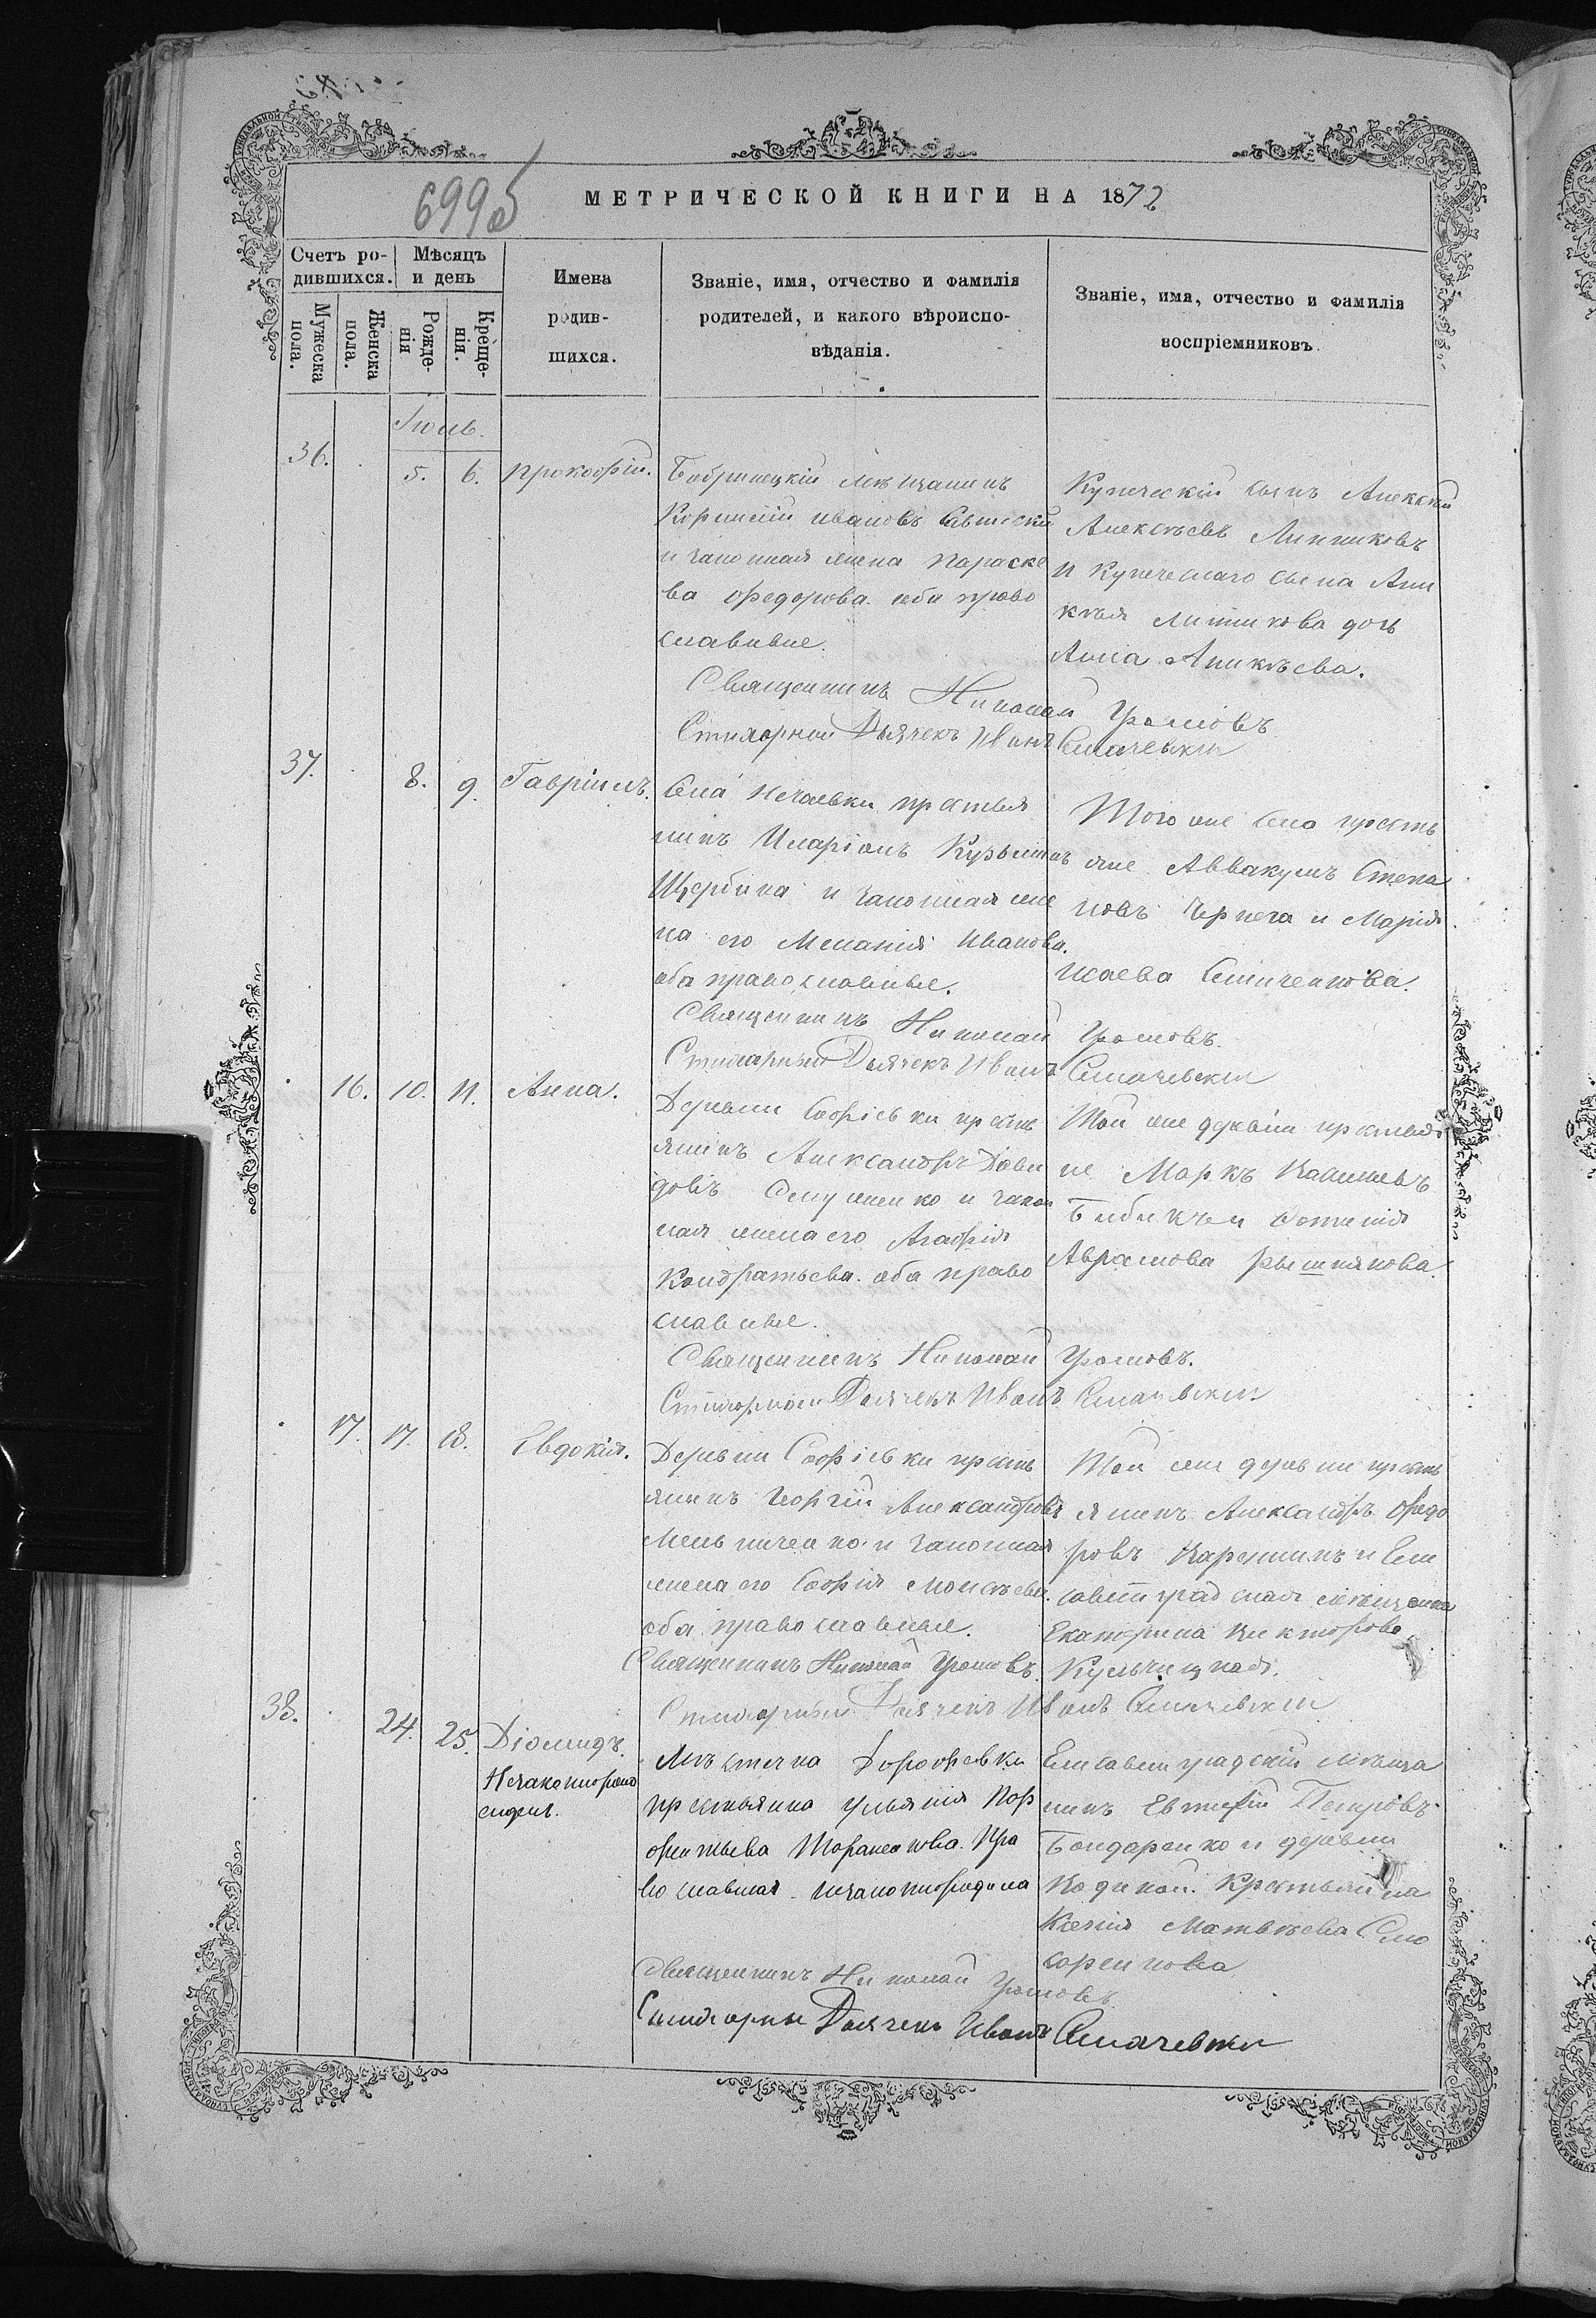 699б
МЕТРИЧЕСКОЙ КНИГИ НА 1872
Счетъ родившихся.
Мужеска пола.
Женска пола.
Мѣсяцъ и день
Рожденія
Крещенія.
Имена родившихся.
Званіе, имя, отчество и фамилія
родителей, и какого вѣроиспо-
вѣданія.
Званіе, имя, отчество и фамилія
воспріемниковъ
Іюль.
36. 5. 6. Прокофій.
Бобринецкій мѣщанинъ
Корнилій Ивановъ
и законная жена Параске
ва Федорова оба право
славные.
Купеческій сынъ Алексѣй
Алексѣевъ Литниковъ
и купеческаго сына Ани
кѣя Литникова дочь
Анна Аникѣева.
Священникъ Николай Громовъ
Стихарный Дьячекъ Иванъ Смачевскій
37. 8. 9. Гавріилъ.
Села Нечаевки крестья
нинъ Иларіонъ Кузьминъ
Щербина и законная же
на его Меланія Иванова.
оба православные.
Того же села кресть
яне Аввакумъ Степа
новъ Чернега и Марія
Исаева
Священникъ Николай Громовъ.
Стихарный Дьячекъ Иванъ Смачевскій
16. 10. 11. Анна.
Деревни Софіевки кресть
янинъ Александръ Дави
довъ и закон
ная жена его Агафія
Кондратьева. оба право
славные.
Той же деревни крестья
не Маркъ
Бибикъ и Фотинія
Аврамова
Священникъ Николай Громовъ.
Стихарный Дьячекъ Иванъ Смачевскій
17. 17. 18. Евдокія.
Деревни Софіевки кресть
янинъ Георгій Александровъ
Мельниченко и законная
жена его Софія Моисѣева.
оба православные.
Той же деревни кресть
янинъ Александръ Федо
ровъ и Ели
саветградская мѣщанка
Екатерина Викторова
Кульчицкая.
Священникъ Николай Громовъ.
Стихарный Дьячекъ Иванъ Смачевскій
38. 24. 25. Діомидъ.
Незаконнорожд
енный.
Мѣстечка Дорофевки
крестьянка Ульянія Пор
фирьева Тараненкова. Пра
вославная. незаконнорождена
Елисаветградскій мѣща
нинъ Евтихій Петровъ
Бондаренко и деревни
крестьянка
Ксенія Матвѣева Сло
Священникъ Николай Громовъ.
Стихарный Дьячекъ Иванъ Смачевскій